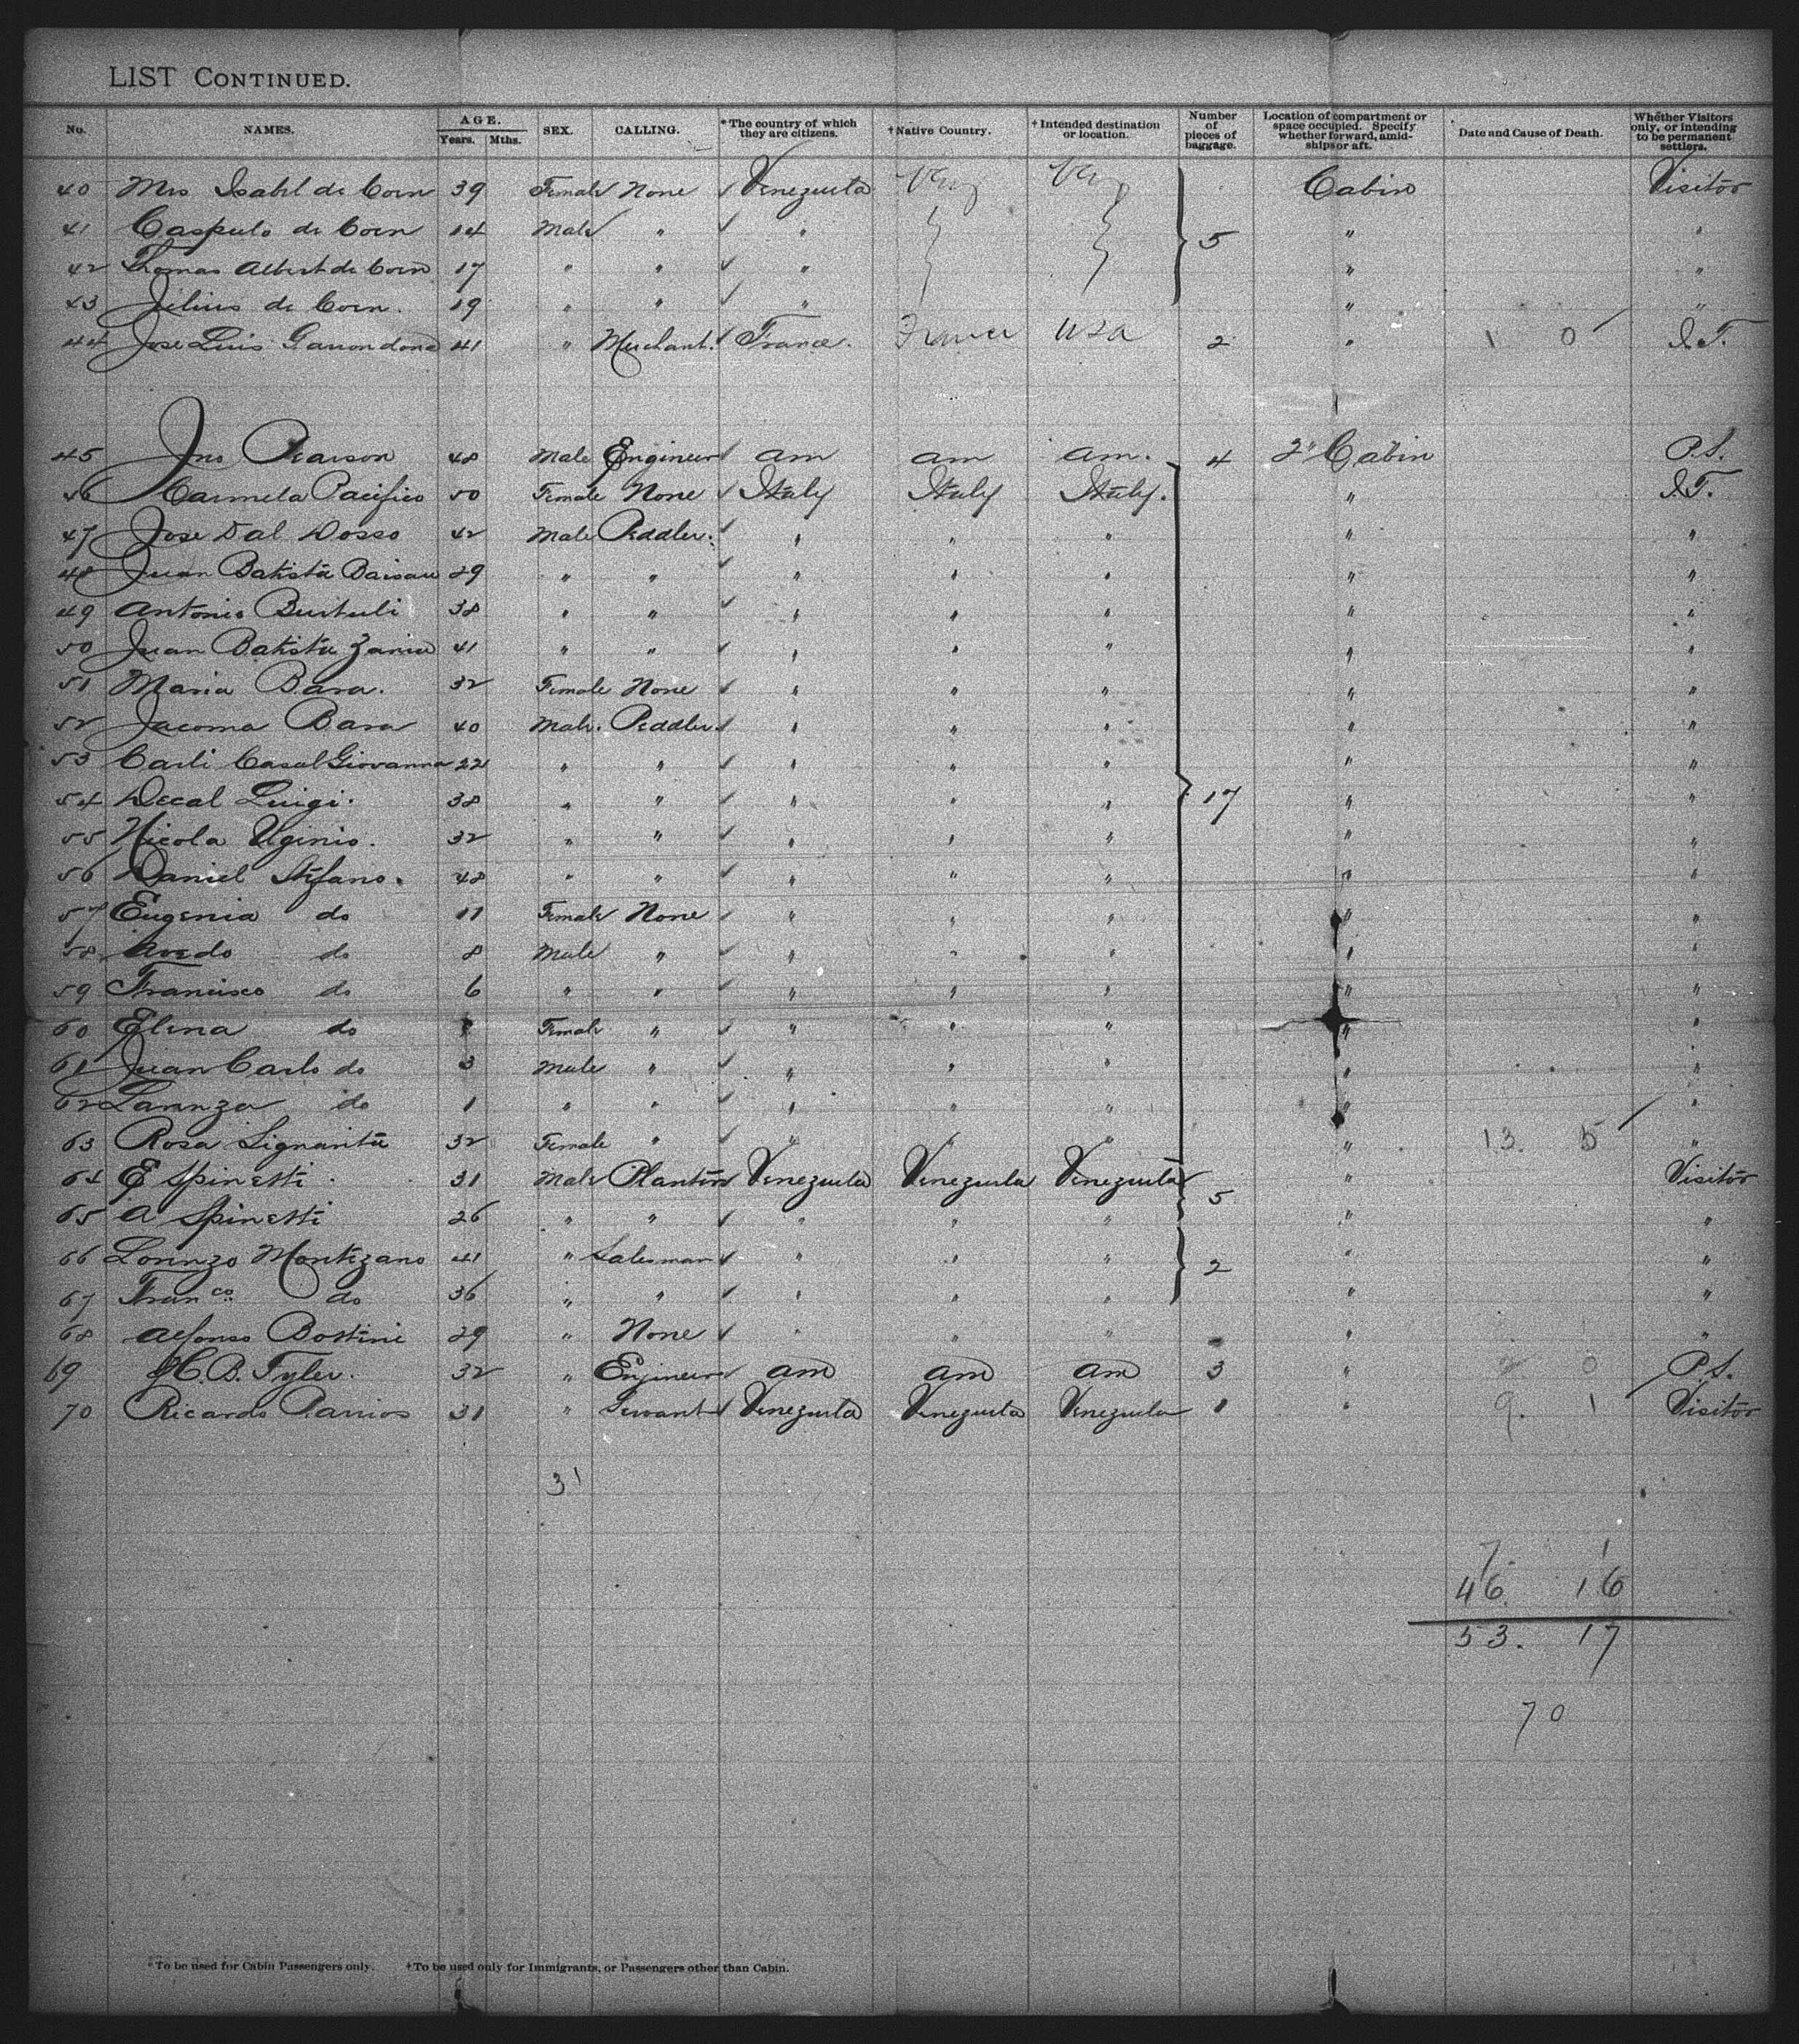 LIST CONTINUED.
No. NAMES. AGE. Years. Mths. SEX. CALLING. *The country of which they are citizens. †Native Country. †Intended destination or location. Number of pieces of baggage. Location of compartment or space occupied. Specify whether forward, amidships or aft. Date and Cause of Death. Whether Visitors only, or intending to be permanent settlers.
40 Mrs Isabel de Coen 39 Female None Venezuela Cabin Visitor
41 de Coen 14 Male " " 5 " "
42 Thomas Albert de Coen 17 " " " " "
43 Julius de Coen. 19 " " " " "
44 Jose Luis 41 " Merchant. France. France USA 2 " 1 0 I.T.
45 Jno Pearson 48 Male Engineer am am am. 4 2" Cabin P.S.
46 Carmela Pacifico 50 Female None Italy Italy Italy. " I.T.
47 Jose Dal Dosso 42 Male Peddler. " " " " "
48 Juan Batista 29 " " " " " " "
49 Antonio 38 " " " " " " "
50 Juan Batista 41 " " " " " " "
51 Maria Bara. 32 Female None " " " " "
52 Jacoma Bara 40 Male. Peddler " " " " "
53 Carli Casal Giovanna 22 " " " " " " "
54 Decal Luigi. 38 " " " " " 17 " "
55 Nicola Uginio. 32 " " " " " " "
56 Daniel Stefano. 48 " " " " " " "
57 Eugenia do 11 Female None " " " " "
58 do 8 Male " " " " " "
59 Francisco do 6 " " " " " " "
60 Elena do Female " " " " " "
61 Juan Carlo do 3 Male " " " " " "
62 do 1 " " " " " " "
63 Rosa 32 Female " " " " " 13. 5 "
64 E Spinetti. 31 Male Planter Venezuela Venezuela Venezuela 5 " Visitor
65 A Spinetti 26 " " " " " " "
66 Lorenzo Montezano 41 " Salesman " " " 2 " "
67 Franco do 36 " " " " " " "
68 Alfonso Bottini 29 " None " " " " "
69 H. B. Tyler. 32 " Engineer am am am 3 " 2 0 P.S.
70 Ricardo Parrios 31 " Servant Venezuela Venezuela Venezuela 1 " 9. 1 Visitor
31
7. 1
46. 16
53. 17
70
*To be used for Cabin Passengers only. †To be used only for Immigrants, or Passengers other than Cabin.